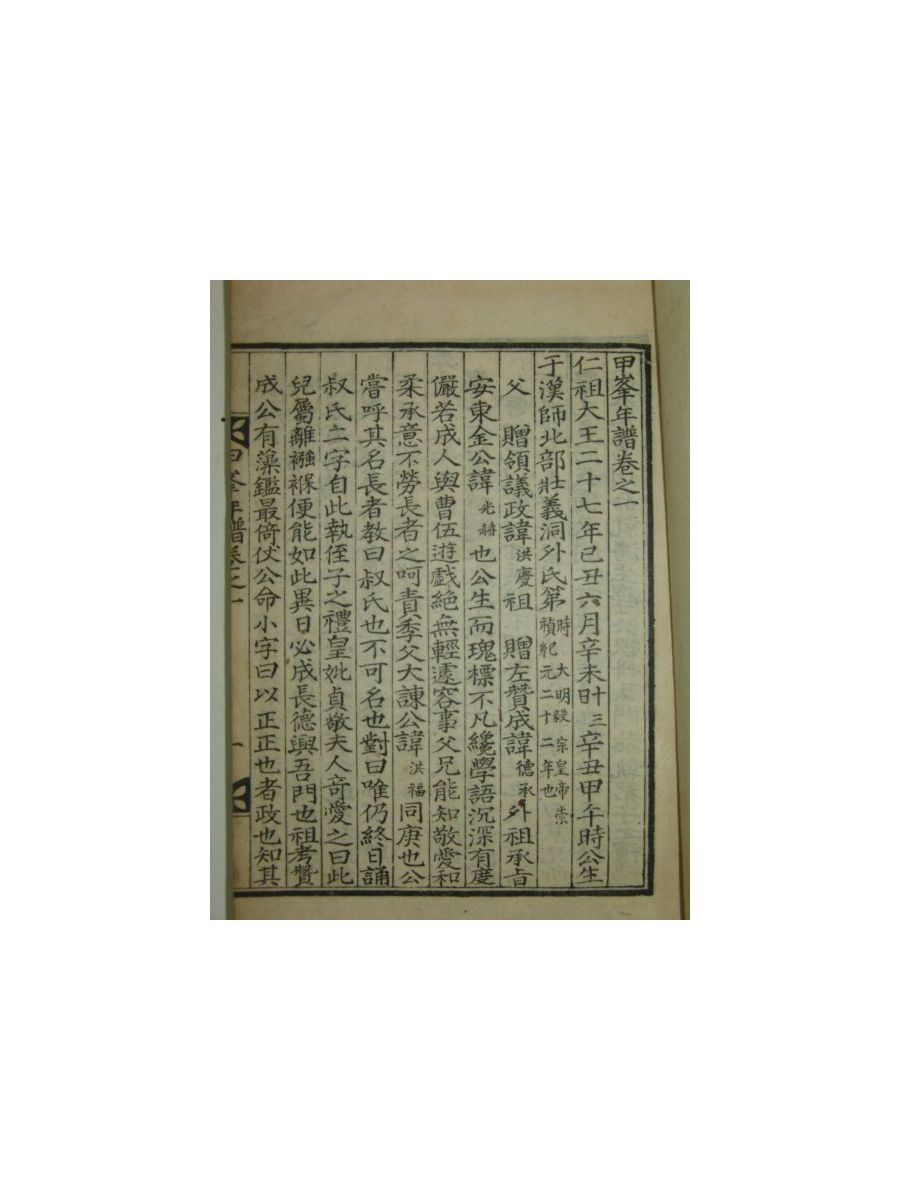 甲峯年譜卷之一
仁祖大王二十七年己丑六月辛未日十三辛丑甲午時公生
于漢師北部壯義洞外氏第時大明毅宗皇帝崇禎紀元二十二年也
父 贈領議政諱洪慶祖 贈左贊成諱德承外祖承旨
安東金公諱光赫也公生而瑰標不凡纔學語沉深有度
儼若成人與曹伍遊戲絕無輕遽容事父兄能知敬愛和
柔承意不勞長者之呵責季父大諫公諱洪福同庚也公
嘗呼其名長者教曰叔氏也不可名也對曰唯仍終日誦
叔氏二字自此執侄子之禮皇妣貞敬夫人奇愛之曰此
兒屬離襁褓便能如此異日必成長德興吾門也祖考贊
成公有藻鑑最倚仗公命小字曰以正正也者政也知其
甲峯年譜卷之一 一